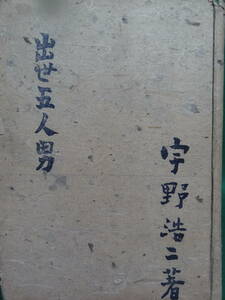 出世五人男
宇野浩二著